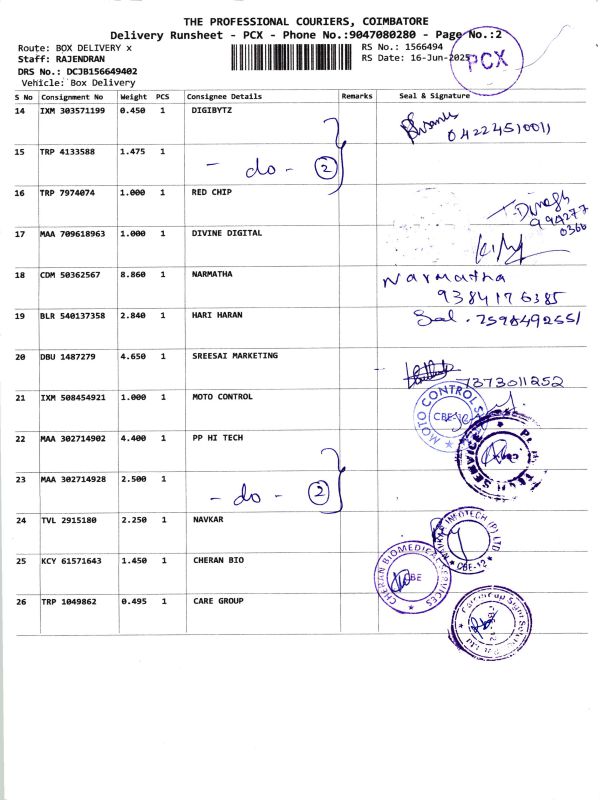 THE PROFESSIONAL COURIERS, COIMBATORE
Delivery Runsheet - PCX - Phone No.:9047080280 - Page No.:2
Route: BOX DELIVERY x RS No.: 1566494
Staff: RAJENDRAN RS Date: 16-Jun-2025
PCX
DRS No.: DCJB156649402
Vehicle: Box Delivery
S No Consignment No Weight PCS Consignee Details Remarks Seal & Signature
14 IXM 303571199 0.450 1 DIGIBYTZ
04224510011
15 TRP 4133588 1.475 1
- do - 2
16 TRP 7974074 1.000 1 RED CHIP
T. Dinesh
994277
0366
17 MAA 709618963 1.000 1 DIVINE DIGITAL
18 CDM 50362567 8.860 1 NARMATHA Narmatha
9384176385
19 BLR 540137358 2.840 1 HARI HARAN
20 DBU 1487279 4.650 1 SREESAI MARKETING
7373011252
21 IXM 508454921 1.000 1 MOTO CONTROL
MOTO CONTROL
CBE
22 MAA 302714902 4.400 1 PP HI TECH
SERVICE
23 MAA 302714928 2.500 1
- do - 2
24 TVL 2915180 2.250 1 NAVKAR
INFOTECH (P) LTD
CBE-12
25 KCY 61571643 1.450 1 CHERAN BIO
CHERAN BIOMEDICAL SERVICES
CBE
26 TRP 1049862 0.495 1 CARE GROUP